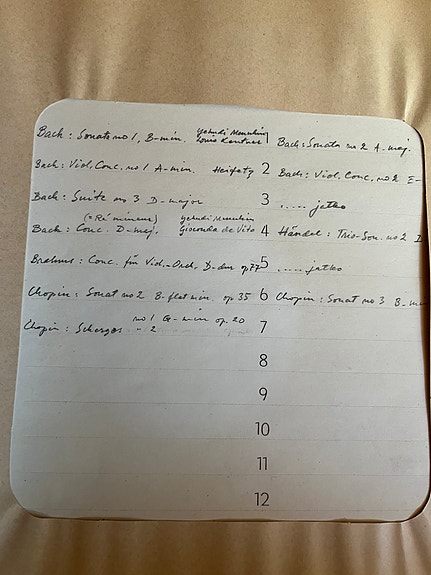 Bach : Sonata no 1, B-min. Yehudi Menuhin Louis Kentner Bach : Sonata no 2 A-maj.
Bach : Viol. Conc. no 1 A-min. Heifetz 2 Bach : Viol. Conc. no 2 E-
Bach : Suite no 3 D-major 3 ..... jatko
(= Ré mineur) Yehudi Menuhin
Bach : Conc. D-maj. Gioconda de Vito 4 Händel : Trio-Son. no 2 D
Brahms : Conc. für Viol.-Orch. D-dur op 77 5 ..... jatko
Chopin : Sonat no 2 B-flat min. op 35 6 Chopin : Sonat no 3 B-min
no 1 G-min op. 20
Chopin : Scherzos " 2 7
8
9
10
11
12